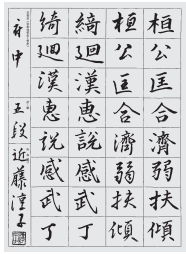 桓公匡合濟弱扶傾
桓公匡合濟弱扶傾
綺迴漢惠說感武丁
綺迴漢惠說感武丁
府中
五段 近藤 子